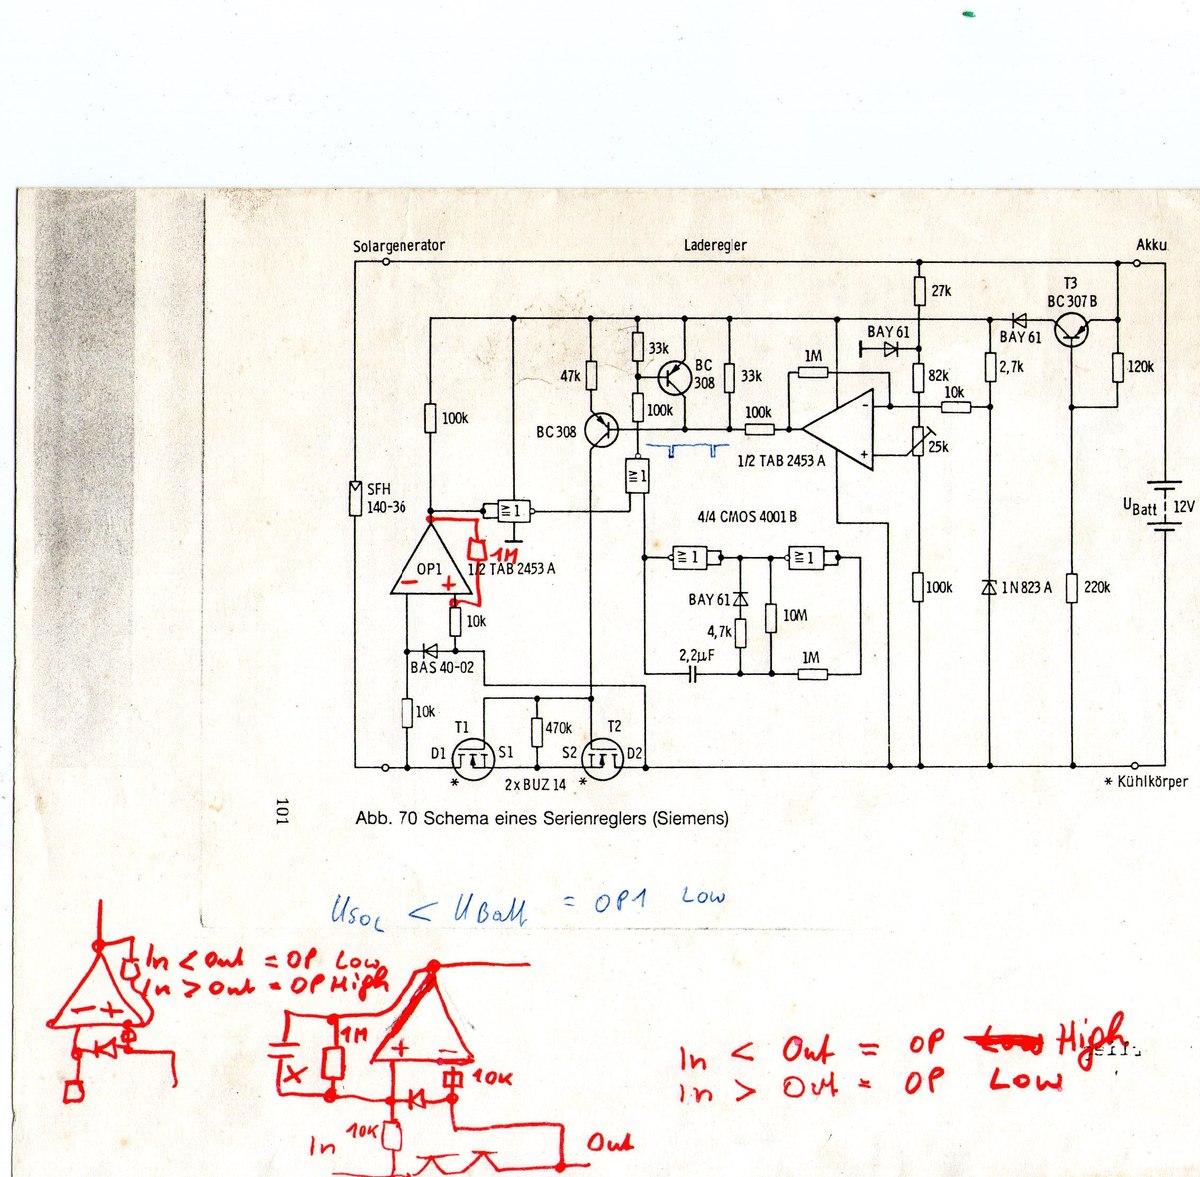 Solargenerator
Laderegler
Akku
27k
T3
BC 307 B
BAY 61
BAY 61
33k
BC
308
33k
1M
82k
2,7k
120k
47k
100k
100k
10k
100k
BC 308
25k
1/2 TAB 2453 A
SFH
140-36
≧1
≧1
4/4 CMOS 4001 B
U Batt 12V
1M
OP1
1/2 TAB 2453 A
≧1
≧1
- +
10k
BAY 61
4,7k
10M
100k
1N 823 A
220k
BAS 40-02
2,2µF
1M
10k
T1
470k
T2
D1
S1
S2
D2
* 2 x BUZ 14 *
* Kühlkörper
101
Abb. 70 Schema eines Serienreglers (Siemens)
USOL < UBatt = OP1 Low
In < Out = OP Low
In > Out = OP High
- +
1M
+ -
X
10K
In
10K
Out
In < Out = OP High
In > Out = OP Low